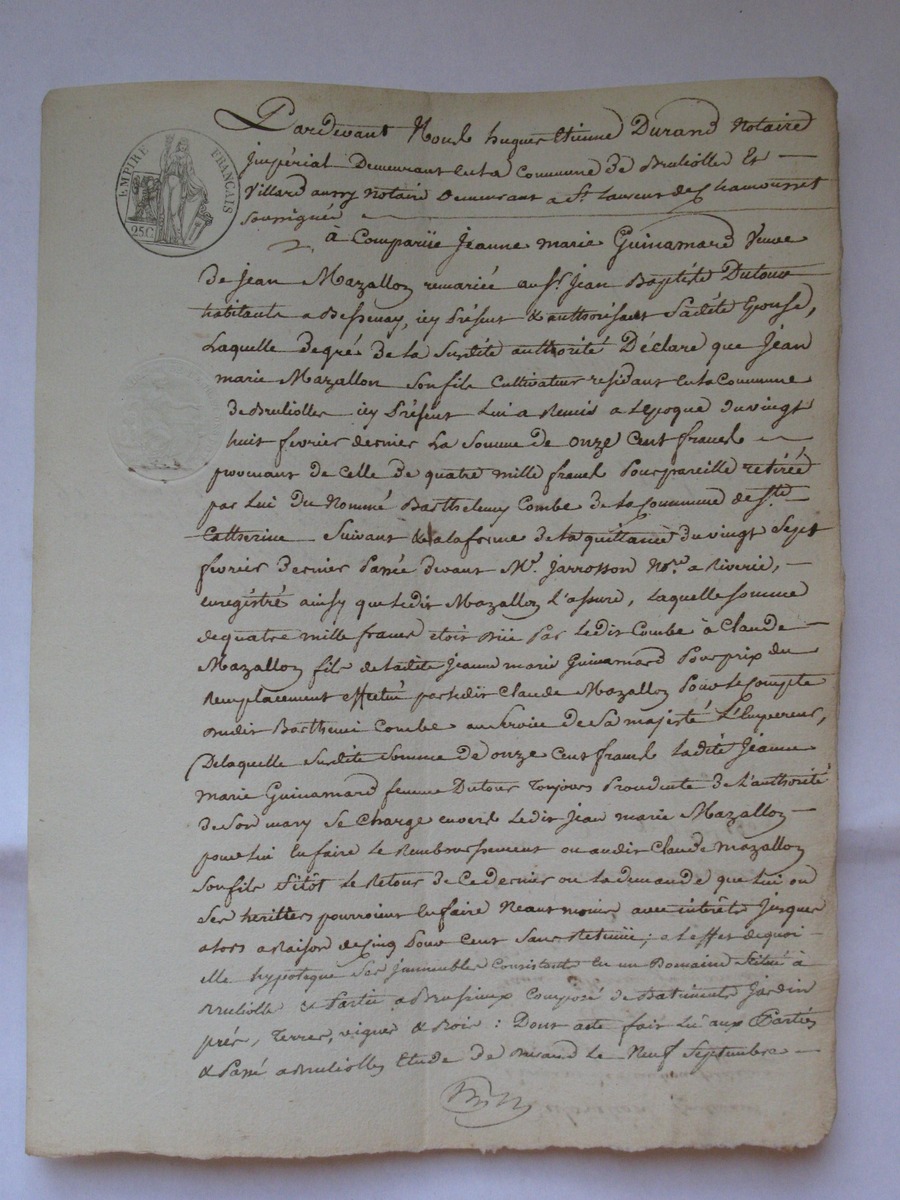 EMPIRE FRANÇAIS
25C
Pardevant Nous hugues Etienne Durand Notaire
jmpérial Demeurant en la Commune de Bruliolle Et
Villard aussy Notaire Demeurant a St. Laurent de Chamousset
soussignés
à Comparüe Jeanne marie Guinamard Veuve
de jean Mazallon remariée au Sr. Jean Baptiste Dutour
habitante a Bessenay, icy Présent & authorisant Sadite Epouse,
Laquelle de gré de la Susdite authorité Déclare que Jéan
marie Mazallon son fils Cultivateur residant en la Commune
de Brulioller icy Présent Lui a Remis a L'epoque du vingt
huit fevrier dernier La Somme de onze Cent francs
provenant de Celle de quatre mille francs Pour pareille retirée
par Lui du Nommé Barthelemy Combe de la Commune de Ste
Catherine Suivant & a la forme de la quittance du vingt Sept
fevrier dernier Passée devant Me. Jarrosson Nore. a Riverie,
enregistré ainsy que Ledit Mazallon L'assure, Laquelle Somme
de quatre mille francs etoit düe Par Ledit Combe à Claude
Mazallon fils de Ladite Jeanne marie Guinamard Pour prix du
Remplacement effectué par ledit Claude Mazallon Pour Le Compte
dudit Barthemi Combe au Service de Sa majesté L'Empereur,
De laquelle Susdite Somme de onze Cent francs Ladite Jéanne
marie Guinamard femme Dutour Toujours Procedente de L'authorité
de Son mary Se Charge envers Ledit Jean marie Mazallon
pour Lui En faire Le Remboursement ou audit Claude mazallon
Son fils Sitôt Le Retour de Ce dernier ou La demande que Lui ou
Ses heritiers pourroient En faire Neantmoins avec intérêts Jusques
alors a Raison de Cinq Pour Cent Sans Retenüe; a L'effet de quoi
elle hypoteque Ses jmmeubles Consistants En un Domaine Situé à
Brulliolle & Partie a Brussieux Composé de Batiments Jardin
prés, Terres, vignes & Bois : Dont acte fait Lû aux Parties
& Passé a Brulioller Etude de Durand Le Neuf Septembre